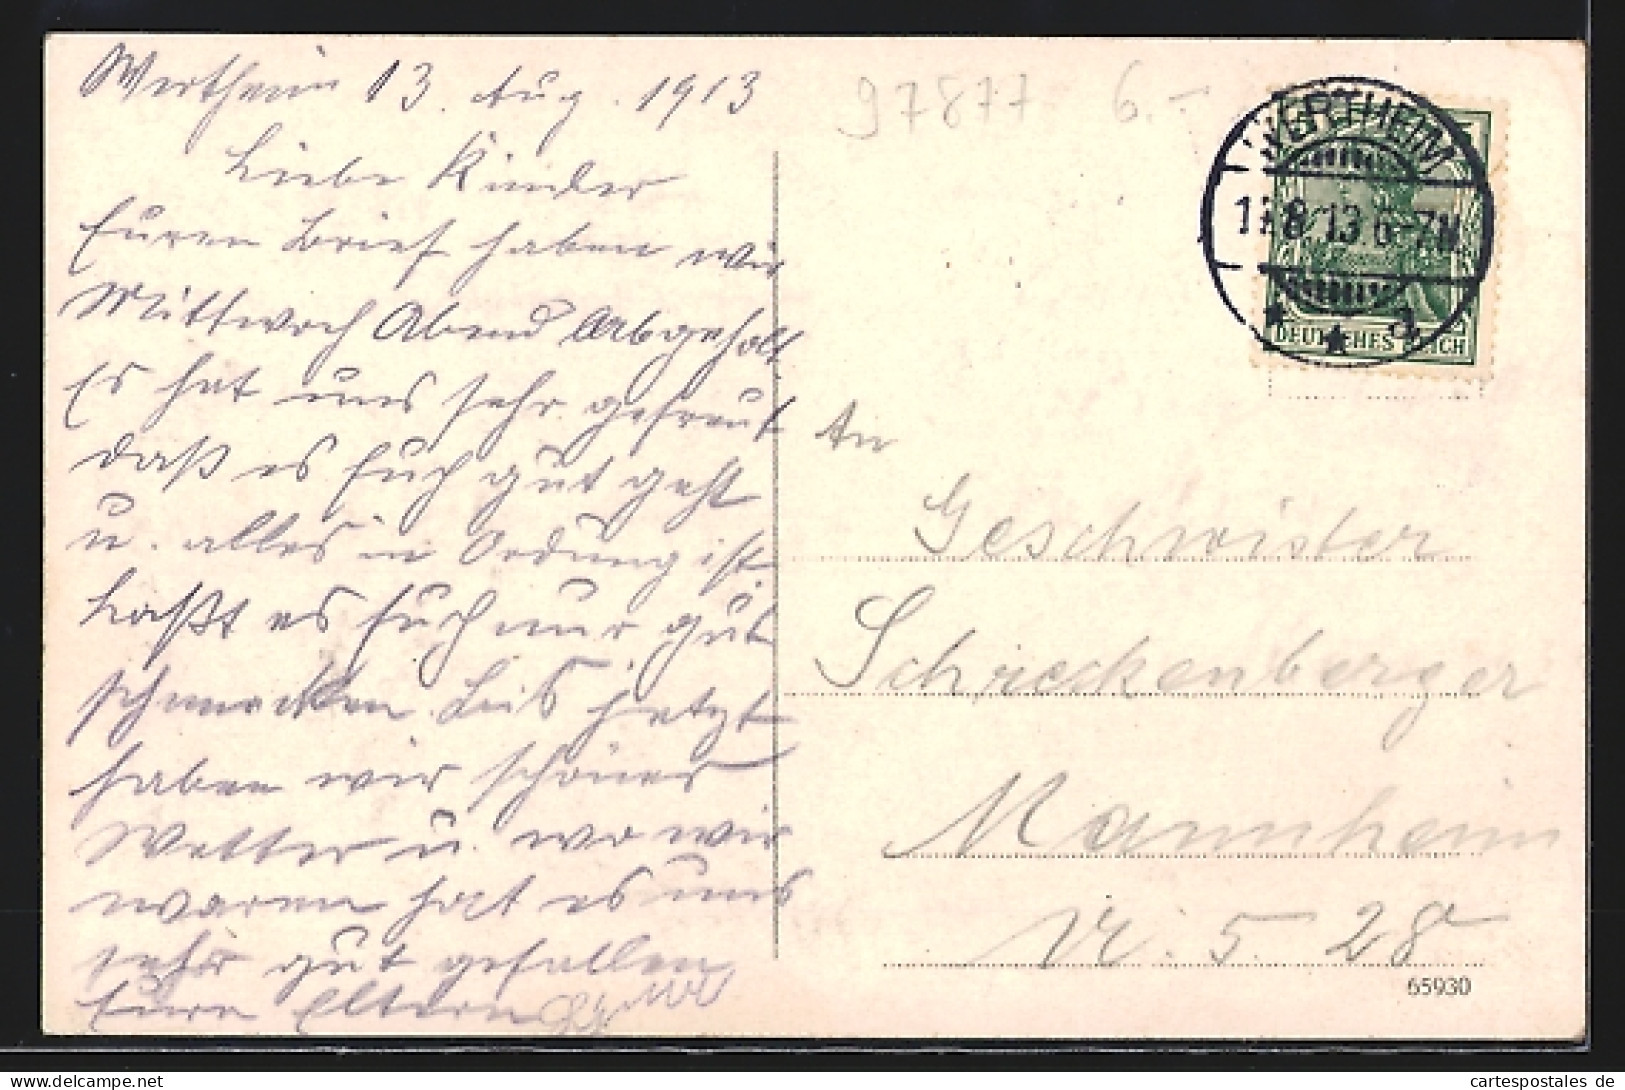 Wertheim 13. Aug. 1913
Liebe Kinder
Euren Brief haben wir
Mittwoch Abend Abgeholt.
Es hat uns sehr gefreut
daß es Euch gut geht
u. alles in Ordnung ist.
Laßt es Euch nur gut
schmecken. Bis jetzt
haben wir schönes
Wetter u. wo wir
waren hat es uns
sehr gut gefallen
Eure Eltern
97877 6.-
WERTHEIM
8 13. 6-7N
DEUTSCHES REICH
An
Geschwister
Schreckenberger
Mannheim
5. 28
65930
cartespostales.de